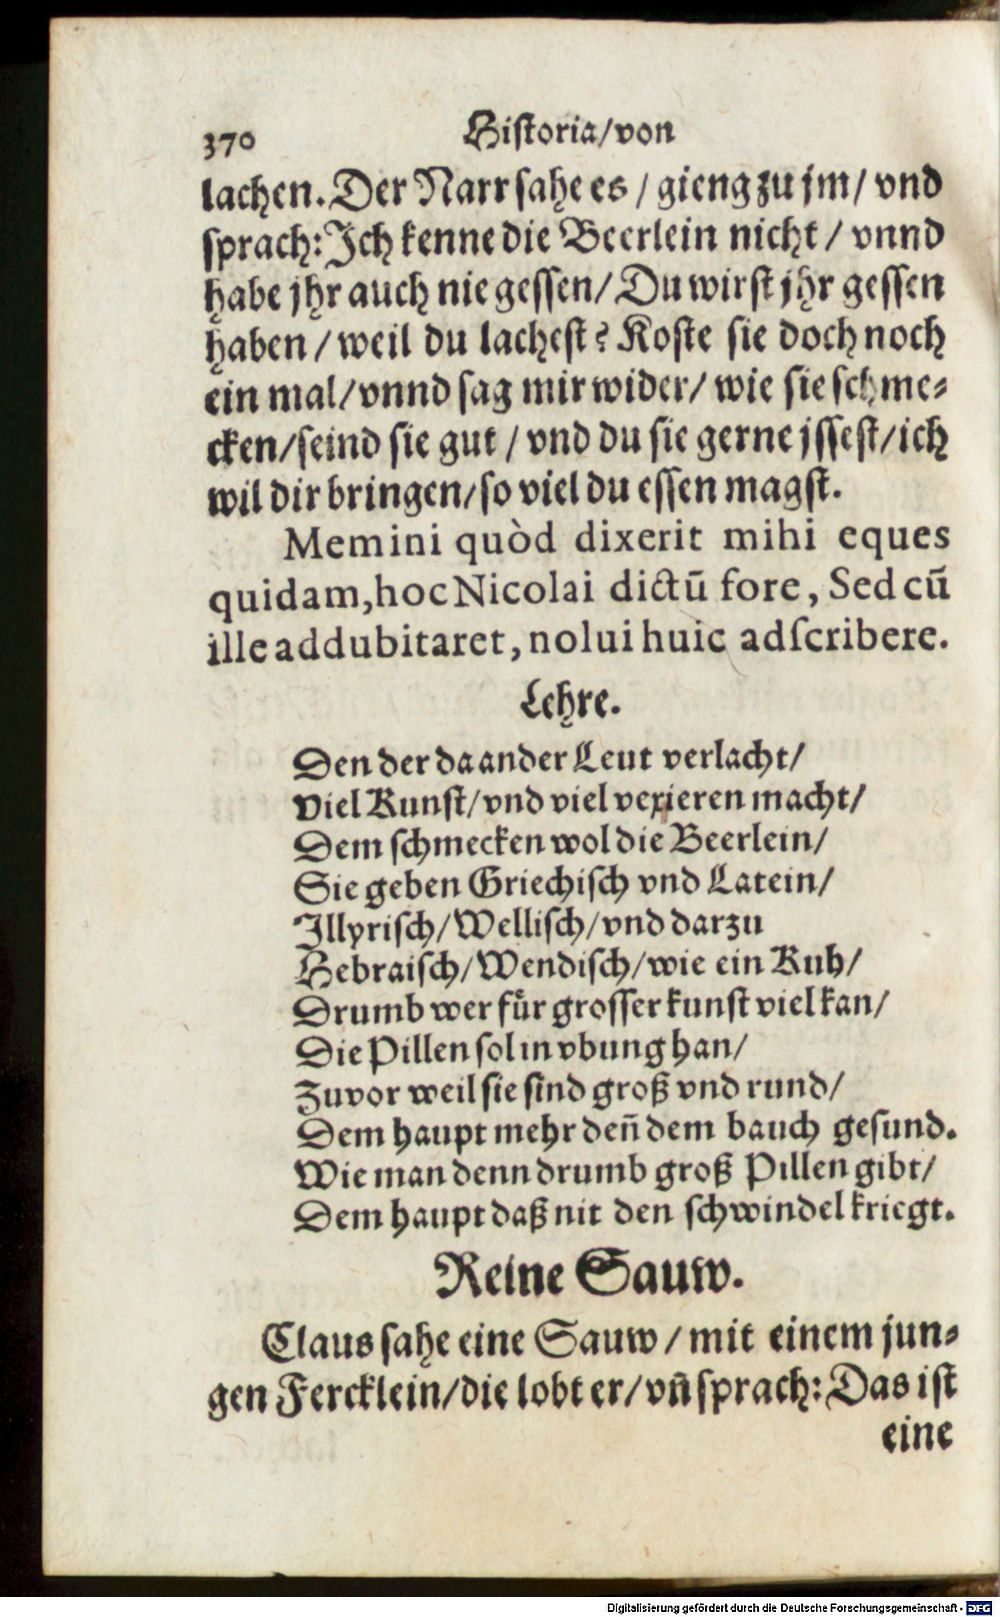 370 Historia/von
lachen. Der Narr sahe es / gieng zu jm/ vnd
sprach: Ich kenne die Beerlein nicht / vnnd
habe jhr auch nie gessen/ Du wirst jhr gessen
haben / weil du lachest? Koste sie doch noch
ein mal/ vnnd sag mir wider/ wie sie schme⸗
cken/ seind sie gut / vnd du sie gerne jssest/ ich
wil dir bringen/ so viel du essen magst.
Memini quòd dixerit mihi eques
quidam, hoc Nicolai dictū fore, Sed cū
ille addubitaret, nolui huic adscribere.
Lehre.
Den der da ander Leut verlacht/
Viel Kunst/ vnd viel vexieren macht/
Dem schmecken wol die Beerlein/
Sie geben Griechisch vnd Latein/
Illyrisch/ Wellisch/ vnd darzu
Hebraisch/ Wendisch/ wie ein Kuh/
Drumb wer für grosser kunst viel kan/
Die Pillen sol in vbung han/
Zuvor weil sie sind groß vnd rund/
Dem haupt mehr deñ dem bauch gesund.
Wie man denn drumb groß Pillen gibt/
Dem haupt daß nit den schwindel kriegt.
Reine Sauw.
Claus sahe eine Sauw / mit einem jun⸗
gen Fercklein/ die lobt er/ vñ sprach: Das ist
eine
Digitalisierung gefördert durch die Deutsche Forschungsgemeinschaft - DFG